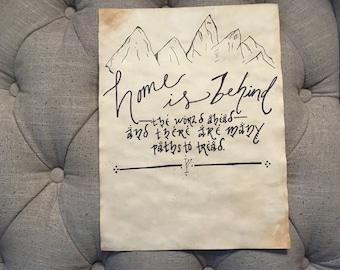 home is Behind
the world ahead
and there are many
paths to tread